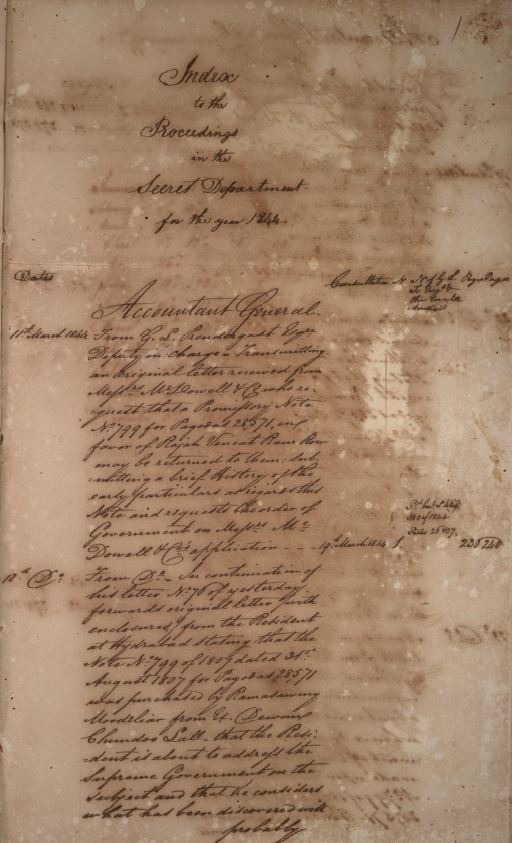 Index
to the
Proceedings
in the
Secret Department
for the year 1844.
Dates
Consultation No. No. of G. L. Pages Pages
Accountant General.
11th March 1844 From G. L. Prendergast Esqre
Deputy in charge. Transmitting
an original letter received from
Messrs McDowell & Co who re-
-quest that a Promissory Note
No. 799 for Pagodas 28571, in
favor of Rajah Vencat Ram Row
may be returned to them sub-
-mitting a brief History of the
early particulars as regards this
Note and requests the order of
Government on Messrs Mc
Dowell & Co's application - - 19th March 1844 1. 236 240
12th Do From Do - In continuation of
his letter No. 76 of yesterday
forwards original letter with
enclosures, from the Resident
at Hydrabad stating that the
Note No. 799 of 1807 dated 31st
August 1807 for Pagodas 28,571
was purchased by Ramasawmy
Moodeliar from Ex. Dewan
Chundoo Lall - that the Resi-
-dent is about to address the
Supreme Government on the
subject and that he considers
what has been discovered will
probably